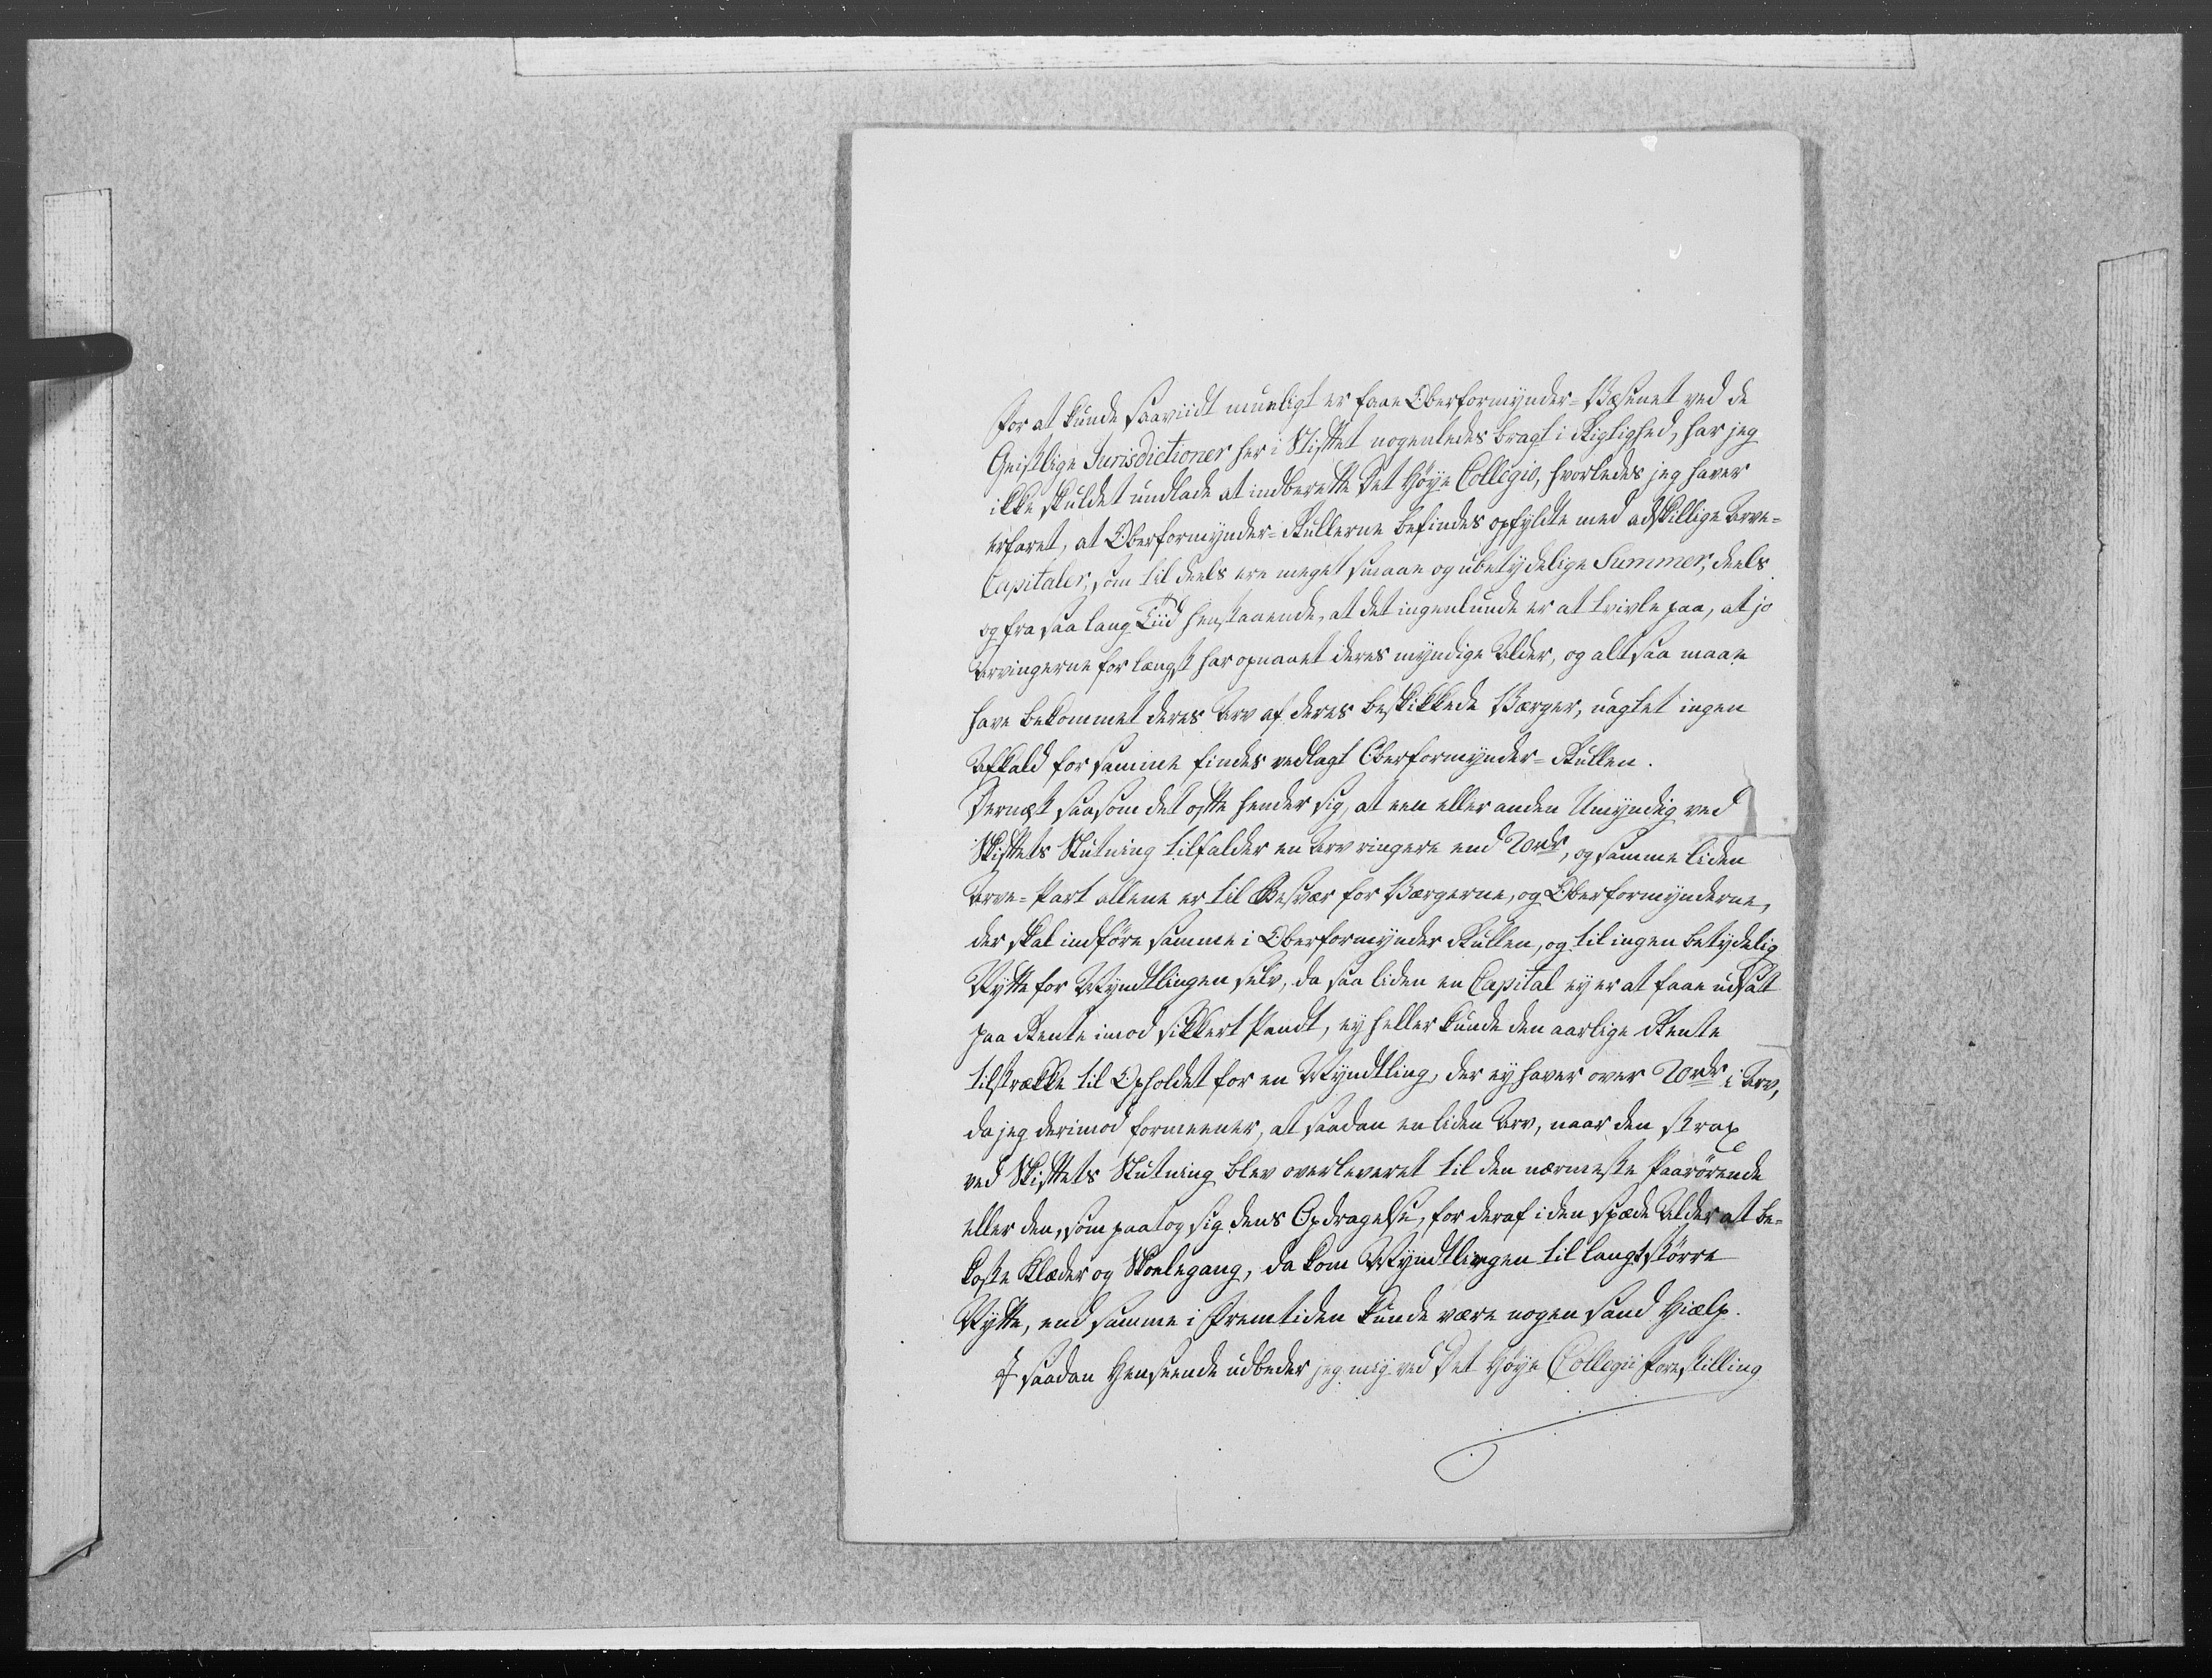 For at kunde saaviidt mueligt er faae Oberformynder-Væsenet ved de
Geistlige Jurisdictioner her i Stiftet nogenledes bragt i Rigtighed, har jeg
ikke skuldet undlade at indberette Det Høye Collegio, hvorledes jeg haver
erfaret, at Oberformynder-Rullerne befindes opfyldte med adskillige Arve-
Capitaler, som til deels ere meget smaae og ubetydelige Summer, deels
og fra saa lang Tiid henstaaende, at det ingenlunde er at tvivle paa, at jo
Arvingerne for længst har opnaaet deres myndige Alder, og altsaa maae
have bekommet deres Arv af deres beskikkede Værger, uagtet ingen
Afkald for samme findes vedlagt Oberformynder-Rullen.
Dernæst saasom det ofte hender sig, at een eller anden Umyndig ved
Skiftets Slutning tilfalder en Arv ringere end 20 rdr, og samme liden
Arve-Part allene er til Besvær for Værgerne, og Oberformynderne,
der skal indføre samme i Oberformynder Rullen, og til ingen betydelig
Nytte for Myndtlingen selv, da saa liden en Capital ey er at faae udsatt
paa Rente imod sikkert Pandt, ey heller kunde den aarlige Rente
tilstrække til Opholdet for en Myndtling, der ey haver over 20 rdr i Arv,
da jeg derimod formeener, at saadan en liden Arv, naar den strax
ved Skiftets Slutning blev overleveret til den nærmeste Paarørende
eller den, som paatog sig dens Opdragelse, for deraf i den spæde Alder at be-
koste Klæder og Skolegang, da kom Myndtlingen til langt større
Nytte, end samme i Fremtiden kunde være nogen sand Hielp.
I saadan Henseende udbeder jeg mig ved Det Høye Collegii Forestilling